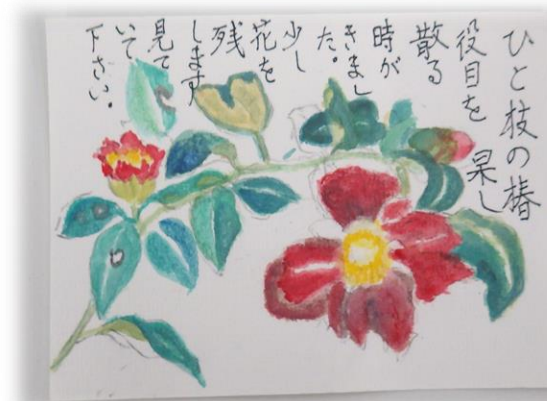 ひと枝の椿
役目を果し
散る
時が
きまし
た。
少し
花を
残
します
見て
いて
下さい。